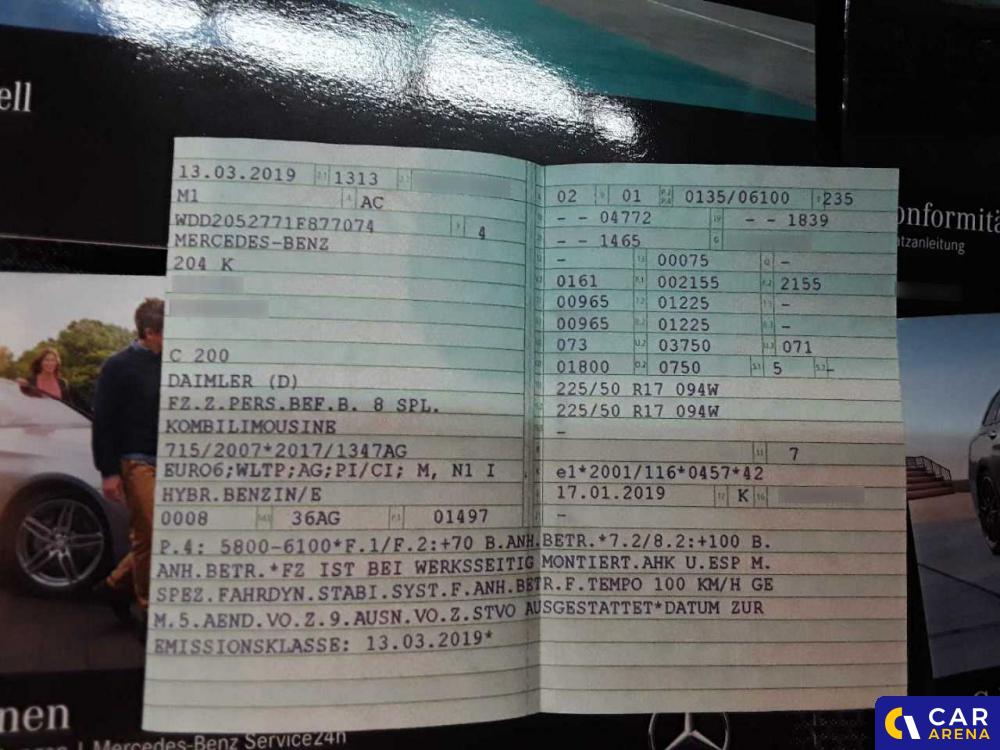 ell
13.03.2019 1313
M1 AC
WDD2052771F877074 4
MERCEDES-BENZ
204 K
C 200
DAIMLER (D)
FZ.Z.PERS.BEF.B. 8 SPL.
KOMBILIMOUSINE
715/2007*2017/1347AG
EURO6;WLTP;AG;PI/CI; M, N1 I
HYBR.BENZIN/E
0008 36AG 01497
02 01 0135/06100 235
- - 04772 - - 1839
- - 1465
- 00075 -
0161 002155 2155
00965 01225 -
00965 01225 -
073 03750 071
01800 0750 5 -
225/50 R17 094W
225/50 R17 094W
-
7
e1*2001/116*0457*42
17.01.2019 K
-
P.4: 5800-6100*F.1/F.2:+70 B.ANH.BETR.*7.2/8.2:+100 B.
ANH.BETR.*FZ IST BEI WERKSSEITIG MONTIERT.AHK U.ESP M.
SPEZ.FAHRDYN.STABI.SYST.F.ANH.BETR.F.TEMPO 100 KM/H GE
M.5.AEND.VO.Z.9.AUSN.VO.Z.STVO AUSGESTATTET*DATUM ZUR
EMISSIONSKLASSE: 13.03.2019*
onformitä
atzanleitung
nen
Mercedes-Benz Service24h
CAR
ARENA